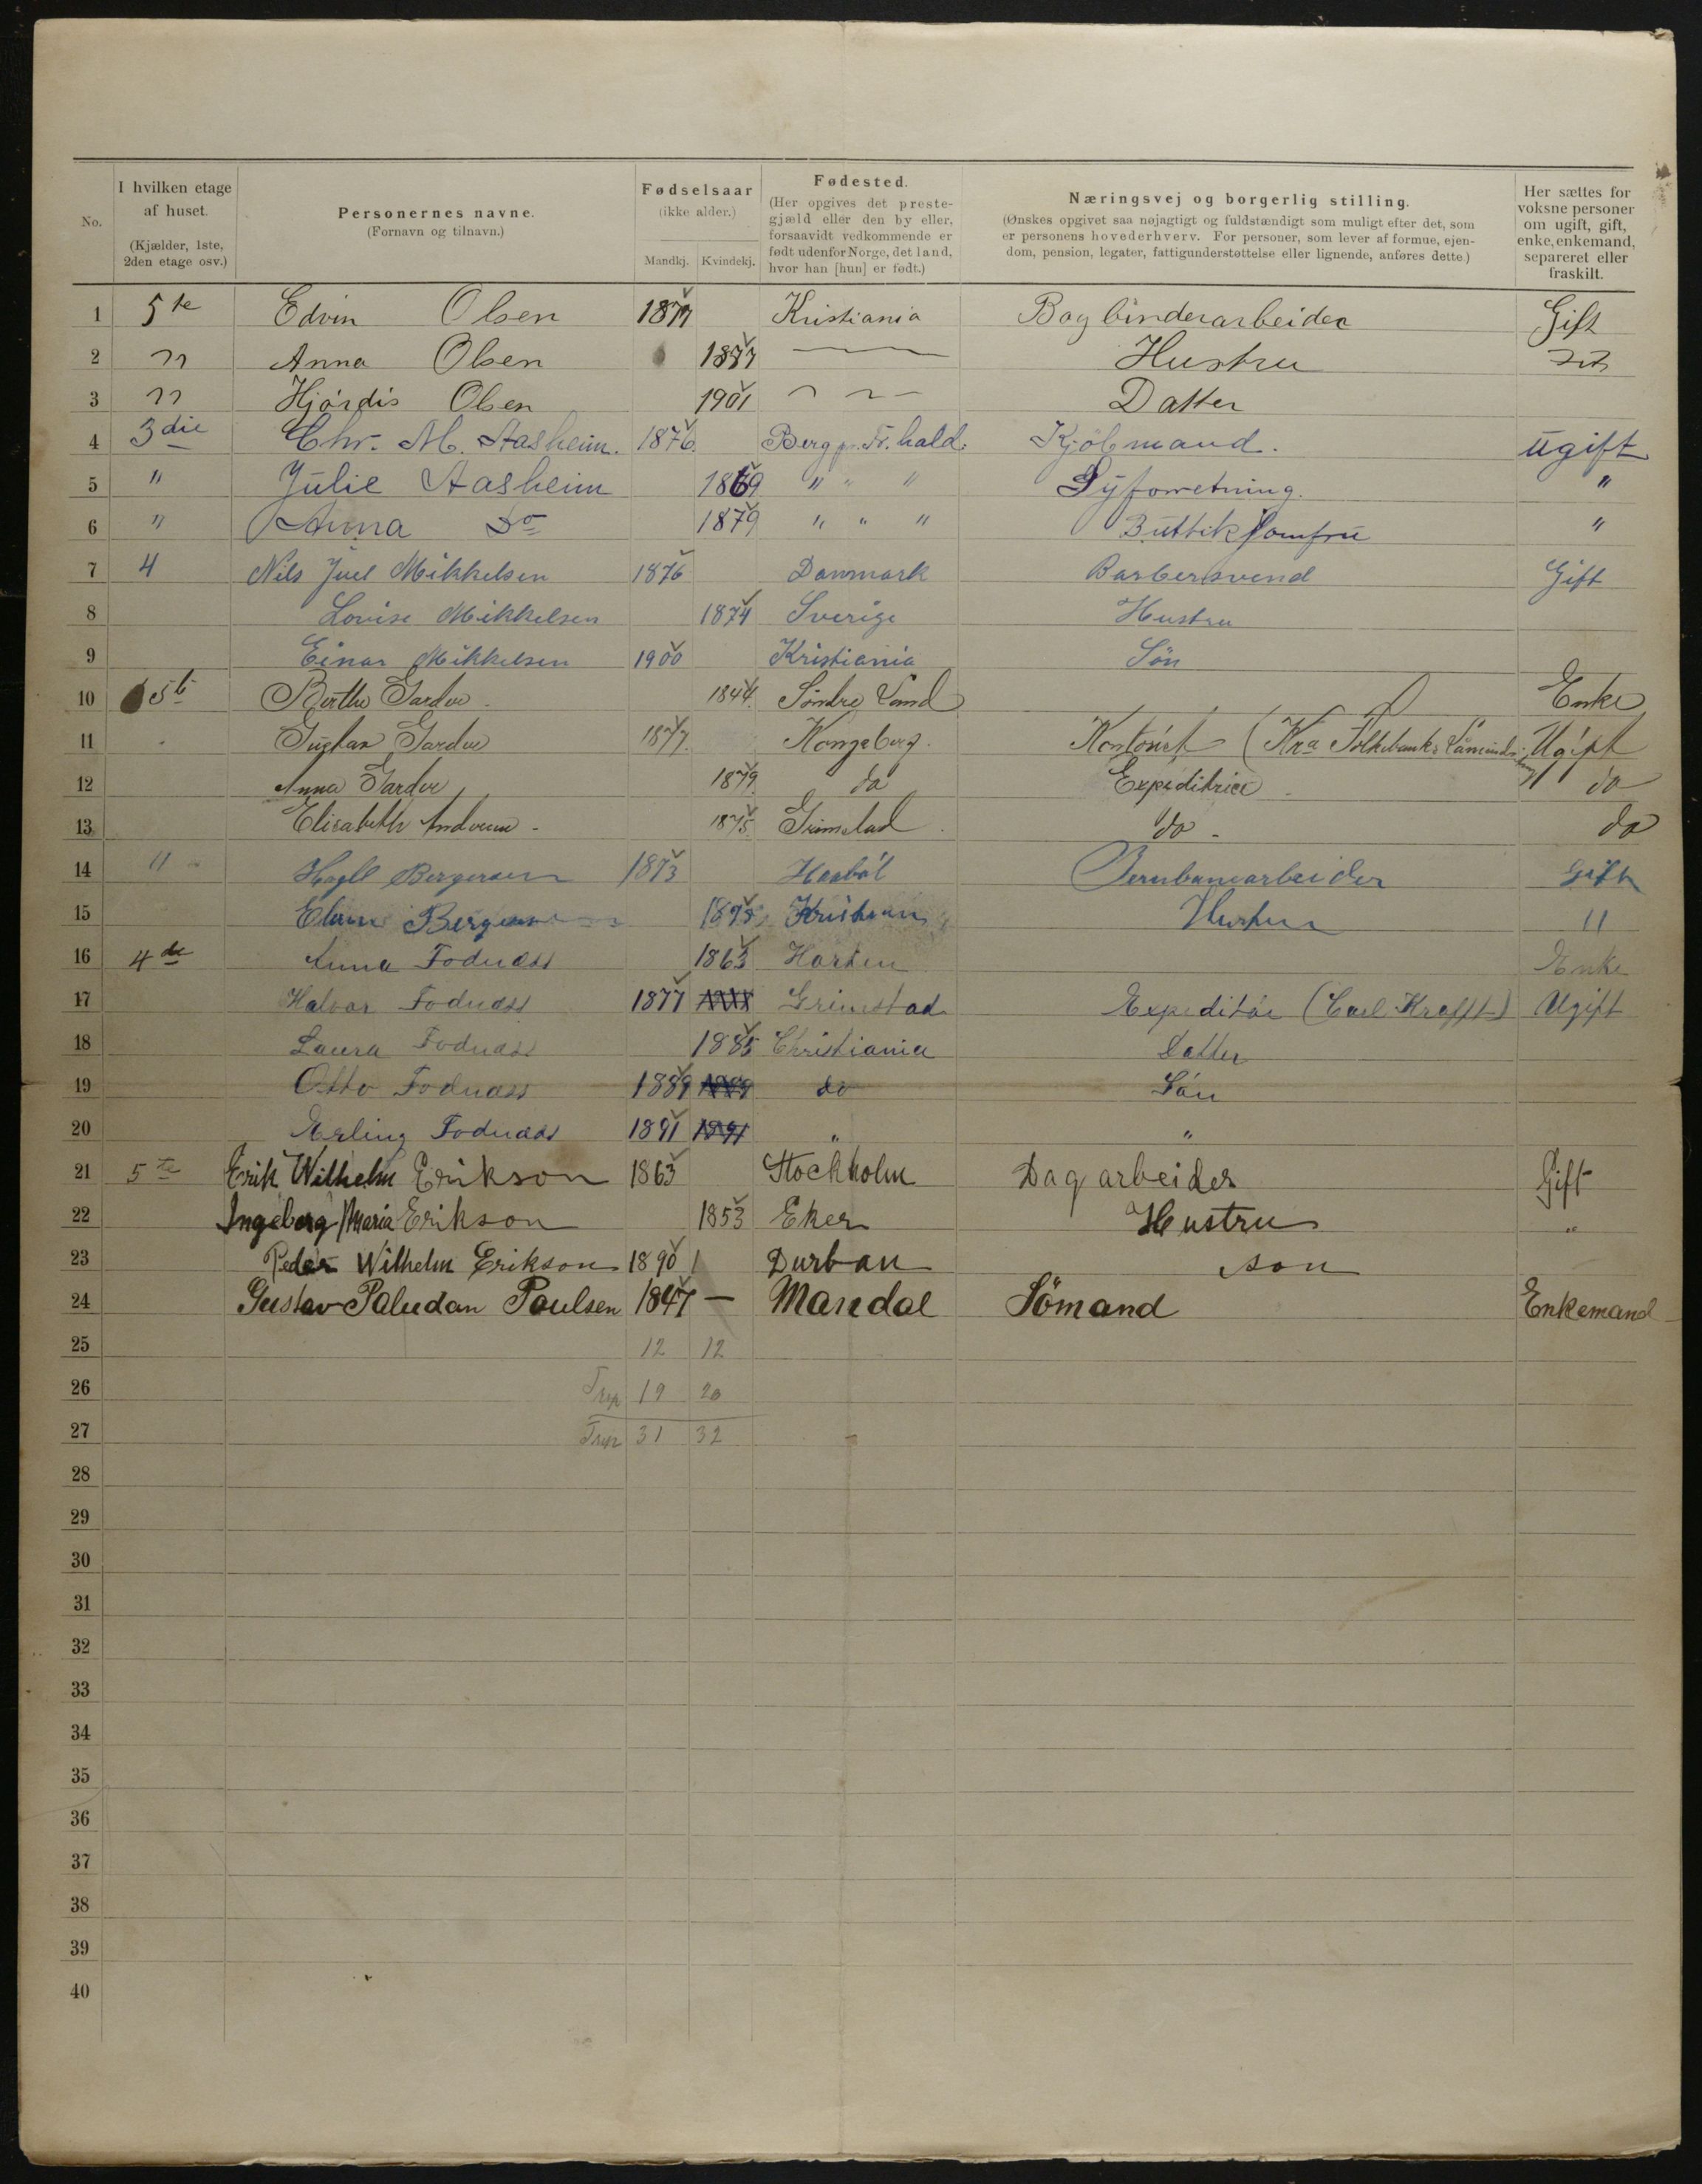 No.
I hvilken etage af huset.
(Kjælder, 1ste, 2den etage osv.)
Personernes navne.
(Fornavn og tilnavn.)
Fødselsaar
(ikke alder.)
Mandkj. Kvindekj.
Fødested.
(Her opgives det preste-
gjæld eller den by eller,
forsaavidt vedkommende er
født udenfor Norge, det land,
hvor han [hun] er født.)
Næringsvej og borgerlig stilling.
(Ønskes opgivet saa nøjagtigt og fuldstændigt som muligt efter det, som
er personens hovederhverv. For personer, som lever af formue, ejen-
dom, pension, legater, fattigunderstøttelse eller lignende, anføres dette.)
Her sættes for
voksne personer
om ugift, gift,
enke, enkemand,
separeret eller
fraskilt.
1 5te Edvin Olsen 1877 Kristiania Bogbinderarbeider Gift
2 " Anna Olsen 1877 — Hustru
3 " Hjørdis Olsen 1901 " " Datter
4 3die Chr. M. Aasheim. 1876. Berg p. Fr.hald. Kjøbmand. Ugift
5 " Julie Aasheim 1869 " " " Syforretning. "
6 " Anna Do 1879 " " " Buttikjomfru "
7 4 Nils Juel Mikkelsen 1876 Danmark Barbersvend Gift
8 Lovise Mikkelsen 1874 Sverige Hustru
9 Einar Mikkelsen 1900 Kristiania Søn
10 5te Berthe Garder 1844. Søndre Land Enke
11 Gustav Garder 1877. Kongsberg. Kontorist (Kra Folkebank) Ugift
12 Anna Garder 1879. do Expeditrice do
13 Elisabeth 1875. Grimstad do - do
14 " Bergersen 1873 Jernbanearbeider Gift
15 Bergersen Kristiania Hustru "
16 4de Anna Fodnæss 1863 Horten Enke
17 Halvor Fodnæss 1877 Grimstad Expeditør (Carl Krafft) Ugift
18 Laura Fodnæss 1885 Christiania Datter
19 Otto Fodnæss 1889 1889 do Søn
20 Erling Fodnæss 1891 1891 " "
21 5te Erik Wilhelm Erikson 1863 Stockholm Dagarbeider Gift
22 Ingeborg Maria Erikson 1853 Eker Hustru "
23 Peder Wilhelm Erikson 1890 Durban son
24 Gustav Paludan Paulsen 1847 — Mandal Sömand Enkemand
25 12 12
26 19 20
27 31 32
28
29
30
31
32
33
34
35
36
37
38
39
40